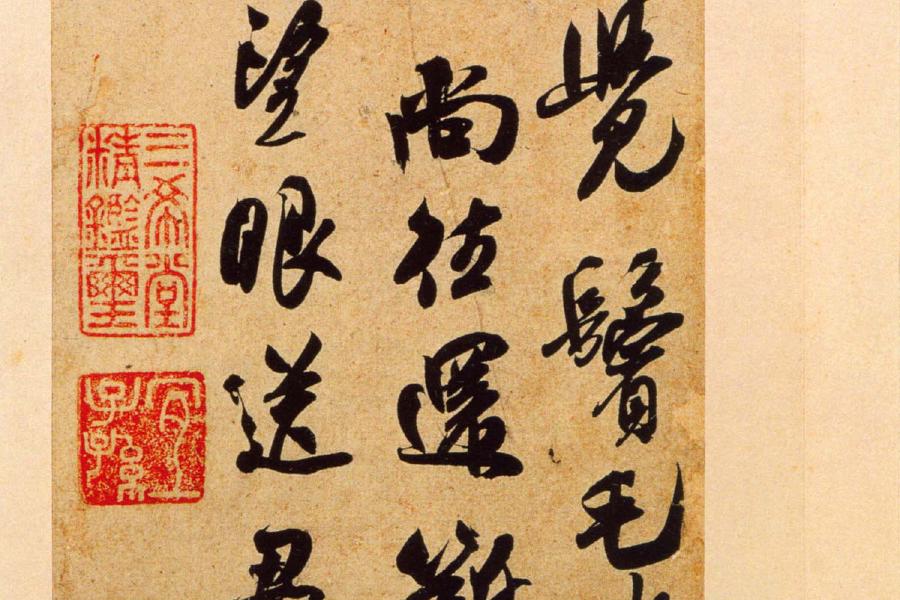 覺鬢毛
尚往還
望眼送
三希堂
精鑑璽
宜
子孫